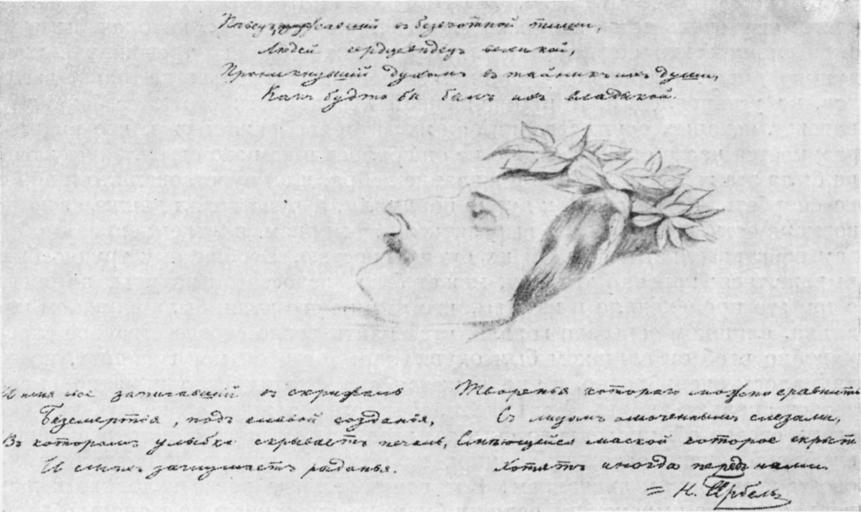 Навеу въ беззвѣтной тиши,
Людей сердцевѣдецъ великой,
Проникнувшій духомъ въ тайникъ ихъ души,
Какъ будто бы былъ ихъ владыкой.
И имя своё записавшій въ скрижаль
Безсмертія, подъ славой созданія,
Въ которомъ улыбка скрываетъ печаль,
И смѣхъ заглушаетъ рыданья.
Творенья котораго можно сравнить
Съ лицомъ омоченнымъ слезами,
Смѣющейся маской которое скрыть
Хотятъ иногда передъ нами
= Н. Арбелъ